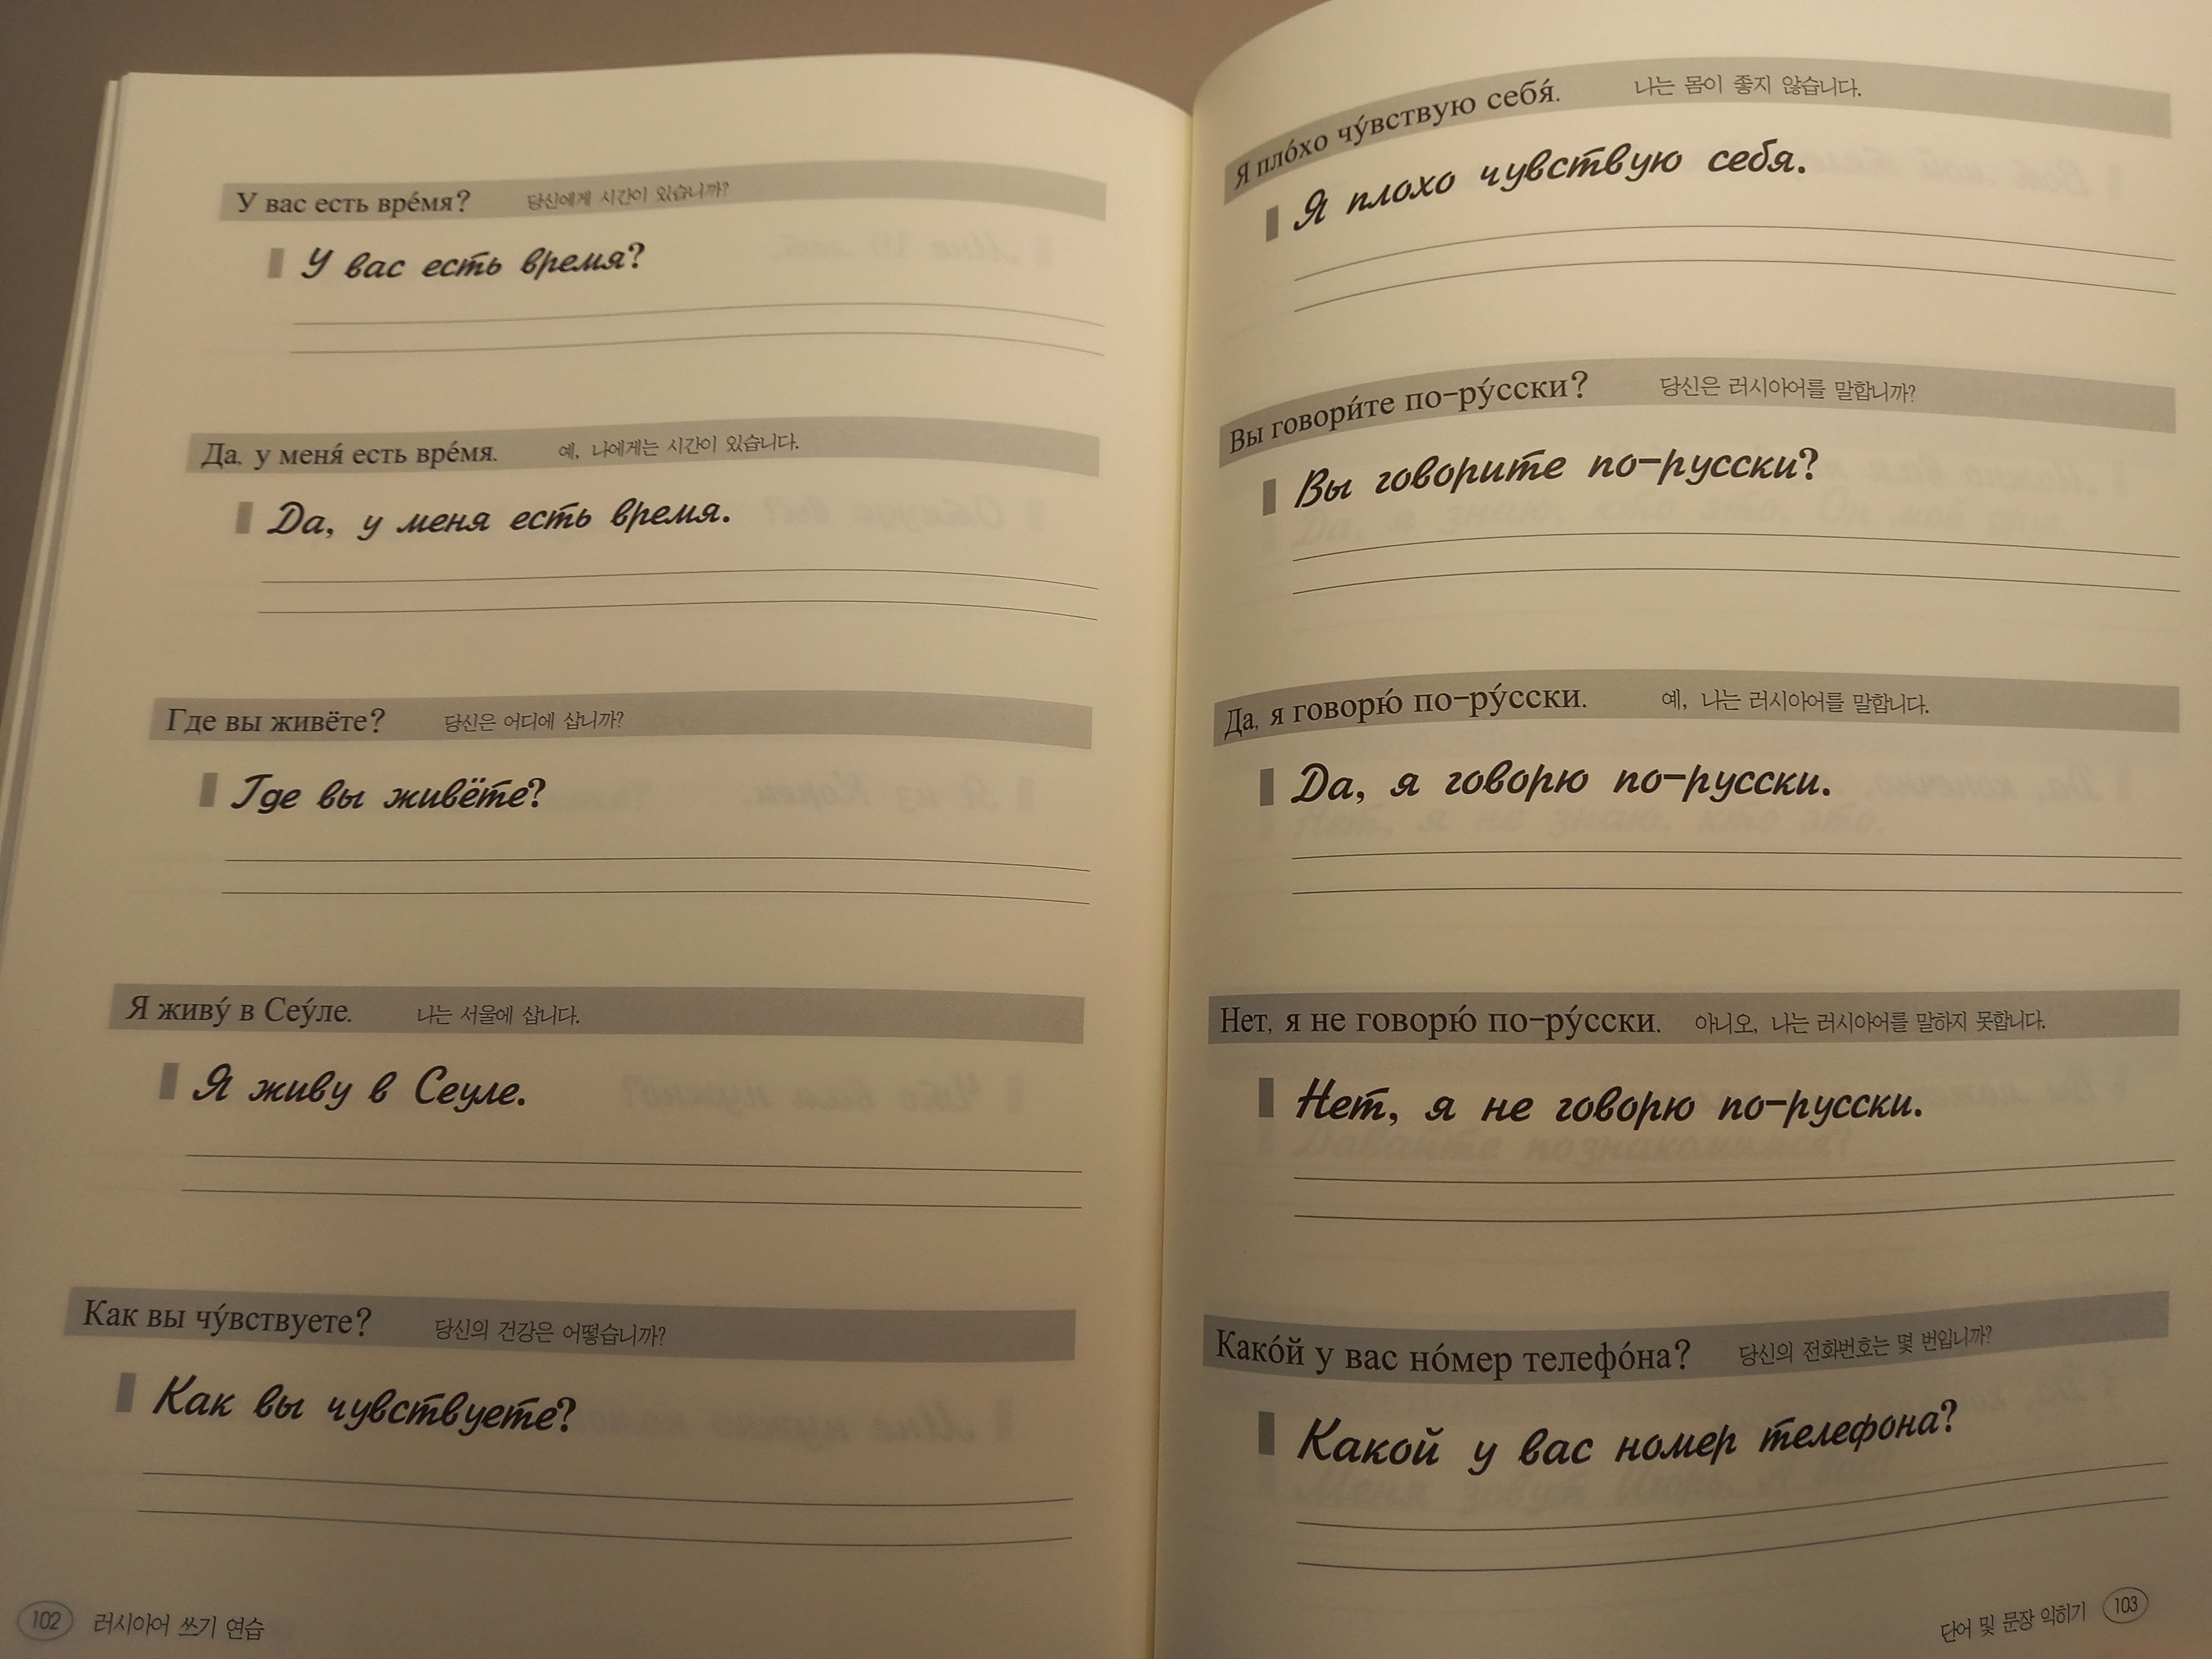 У вас есть вре́мя? 당신에게 시간이 있습니까?
У вас есть время?
Да, у меня́ есть вре́мя. 예, 나에게는 시간이 있습니다.
Да, у меня есть время.
Где вы живёте? 당신은 어디에 삽니까?
Где вы живёте?
Я живу́ в Сеу́ле. 나는 서울에 삽니다.
Я живу в Сеуле.
Как вы чу́вствуете? 당신의 건강은 어떻습니까?
Как вы чувствуете?
102 러시아어 쓰기 연습
Я пло́хо чу́вствую себя́. 나는 몸이 좋지 않습니다.
Я плохо чувствую себя.
Вы говори́те по-ру́сски? 당신은 러시아어를 말합니까?
Вы говорите по-русски?
Да, я говорю́ по-ру́сски. 예, 나는 러시아어를 말합니다.
Да, я говорю по-русски.
Нет, я не говорю́ по-ру́сски. 아니오, 나는 러시아어를 말하지 못합니다.
Нет, я не говорю по-русски.
Како́й у вас но́мер телефо́на? 당신의 전화번호는 몇 번입니까?
Какой у вас номер телефона?
단어 및 문장 익히기 103